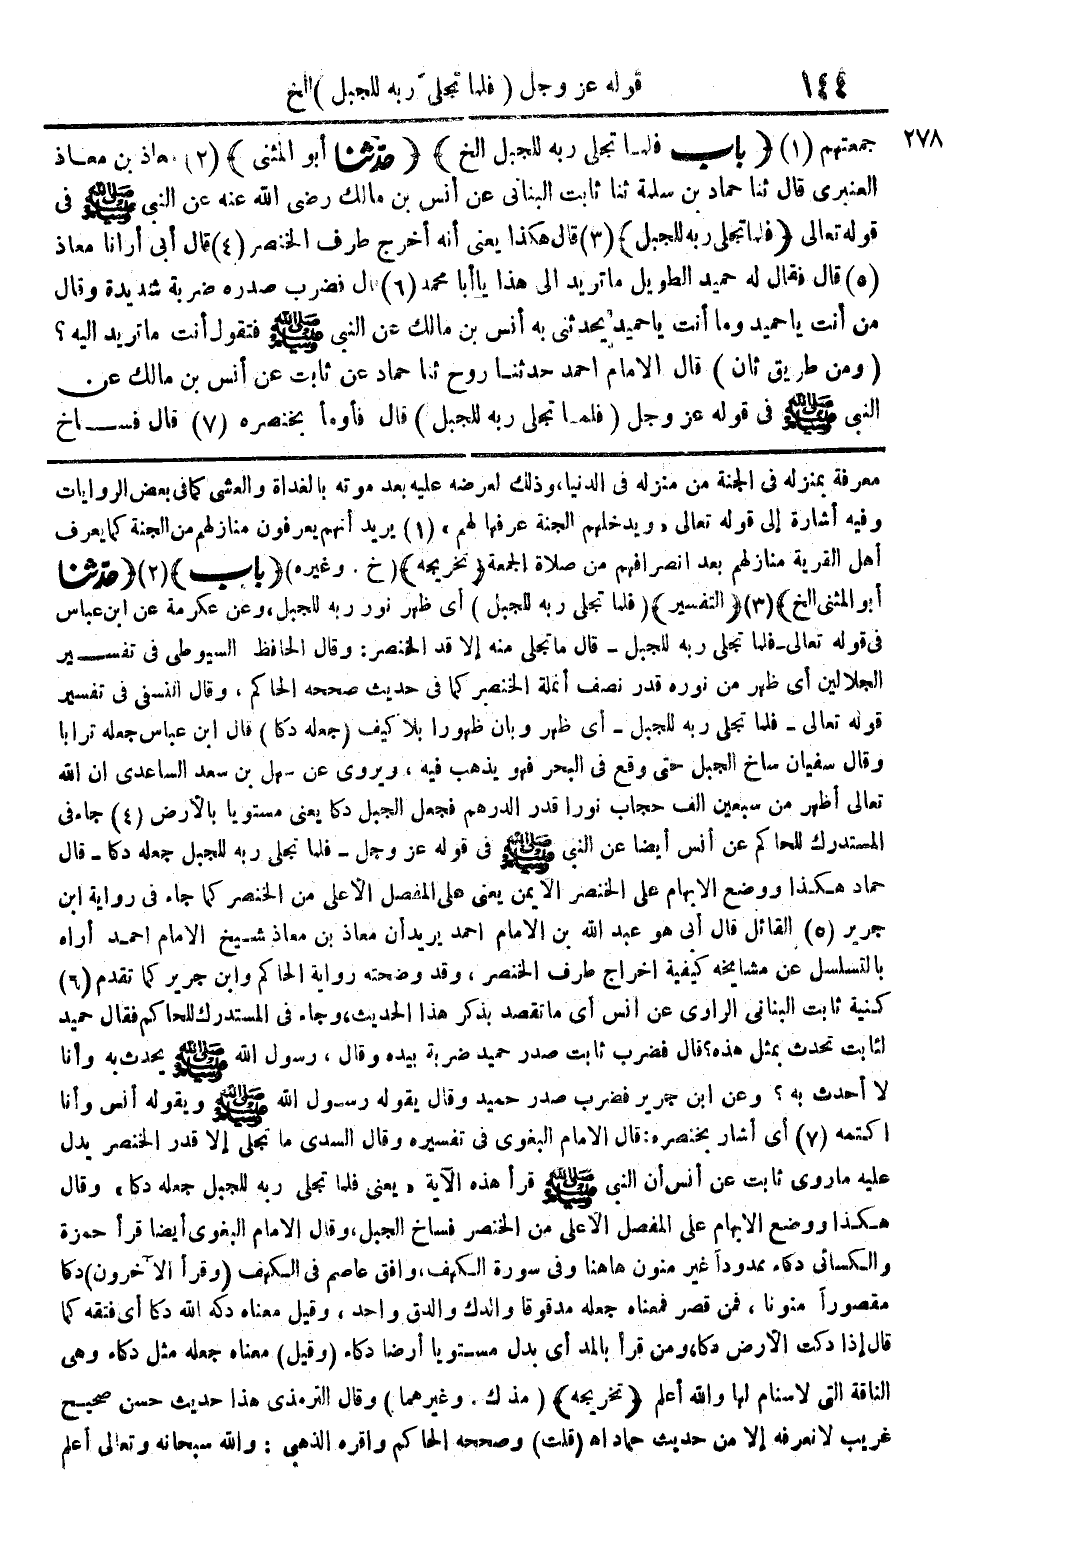 ١٤٤ قوله عز وجل ( فلما تجلى ربه للجبل ) الخ
٢٧٨
جمعتهم (١) ﴿ باب فلما تجلى ربه للجبل الخ ﴾ ﴿ حدّثنا أبو المثنى ﴾ (٢) معاذ بن معاذ
العنبرى قال ثنا حماد بن سلمة ثنا ثابت البنانى عن أنس بن مالك رضى الله عنه عن النبى ﷺ فى
قوله تعالى ﴿ فلما تجلى ربه للجبل ﴾ (٣) قال هكذا يعنى أنه أخرج طرف الخنصر (٤) قال أبى أرانا معاذ
(٥) قال فقال له حميد الطويل ماتريد الى هذا ياأبا محمد (٦) ال فضرب صدره ضربة شديدة وقال
من أنت ياحميد وما أنت ياحميد يحدثنى به أنس بن مالك عن النبى ﷺ فتقول أنت ماتريد اليه ؟
( ومن طريق ثان ) قال الامام احمد حدثنا روح ثنا حماد عن ثابت عن أنس بن مالك عن
النبى ﷺ فى قوله عز وجل ( فلما تجلى ربه للجبل ) قال فأومأ بخنصره (٧) قال فساخ
معرفة بمنزله فى الجنة من منزله فى الدنيا، وذلك لعرضه عليه بعد موته بالغداة والعشى كما فى بعض الروايات
وفيه أشارة إلى قوله تعالى « ويدخلهم الجنة عرفها لهم » (١) يريد أنهم يعرفون منازلهم من الجنة كما يعرف
أهل القرية منازلهم بعد انصرافهم من صلاة الجمعة ﴿ تخريجه ﴾ ( خ . وغيره ) ﴿ باب ﴾ (٢) ﴿ حدّثنا
أبو المثنى الخ ﴾ (٣) ﴿ التفسير ﴾ ( فلما تجلى ربه للجبل ) أى ظهر نور ربه للجبل، وعن عكرمة عن ابن عباس
فى قوله تعالى ـ فلما تجلى ربه للجبل ـ قال ماتجلى منه إلا قد الخنصر : وقال الحافظ السيوطى فى تفسير
الجلالين أى ظهر من نوره قدر نصف أنملة الخنصر كما فى حديث صححه الحاكم ، وقال النسفى فى تفسير
قوله تعالى ـ فلما تجلى ربه للجبل ـ أى ظهر وبان ظهورا بلا كيف ( جعله دكا ) قال ابن عباس جعله ترابا
وقال سفيان ساخ الجبل حتى وقع فى البحر فهو يذهب فيه ، ويروى عن سهل بن سعد الساعدى ان الله
تعالى أظهر من سبعين الف حجاب نورا قدر الدرهم فجعل الجبل دكا يعنى مستويا بالأرض (٤) جاء فى
المستدرك للحاكم عن أنس أيضا عن النبى ﷺ فى قوله عز وجل ـ فلما تجلى ربه للجبل جعله دكا ـ قال
حماد هكذا ووضع الابهام على الخنصر الأيمن يعنى على المفصل الأعلى من الخنصر كما جاء فى رواية ابن
جرير (٥) القائل قال أبى هو عبد الله بن الامام احمد يريد أن معاذ بن معاذ شيخ الامام احمد أراه
بالتسلسل عن مشايخه كيفية اخراج طرف الخنصر ، وقد وضحته رواية الحاكم وابن جرير كما تقدم (٦)
كنية ثابت البنانى الراوى عن انس أى ماتقصد بذكر هذا الحديث، وجاء فى المستدرك للحاكم فقال حميد
لثابت تحدث بمثل هذه؟ قال فضرب ثابت صدر حميد ضربة بيده وقال ، رسول الله ﷺ يحدث به وأنا
لا أحدث به ؟ وعن ابن جرير فضرب صدر حميد وقال يقوله رسول الله ﷺ ويقوله أنس وأنا
اكتمه (٧) أى أشار بخنصره: قال الامام البغوى فى تفسيره وقال السدى ما تجلى إلا قدر الخنصر يدل
عليه ماروى ثابت عن أنس أن النبى ﷺ قرأ هذه الآية « يعنى فلما تجلى ربه للجبل جعله دكا » وقال
هكذا ووضع الابهام على المفصل الأعلى من الخنصر فساخ الجبل، وقال الامام البغوى أيضا قرأ حمزة
والكسائى دكاء ممدوداً غير منون هاهنا وفى سورة الكهف، وافق عاصم فى الكهف ( وقرأ الآخرون ) دكا
مقصوراً منونا ، فمن قصر فمعناه جعله مدقوقا والدك والدق واحد ، وقيل معناه دكه الله دكا أى فتقه كما
قال إذا دكت الأرض دكا، ومن قرأ بالمد أى بدل مستويا أرضا دكاء ( وقيل ) معناه جعله مثل دكاء وهى
الناقة التى لاسنام لها والله أعلم ﴿ تخريجه ﴾ ( مذ ك . وغيرهما ) وقال الترمذى هذا حديث حسن صحيح
غريب لانعرفه إلا من حديث حماد اه ( قلت ) وصححه الحاكم واقره الذهبى : والله سبحانه وتعالى أعلم